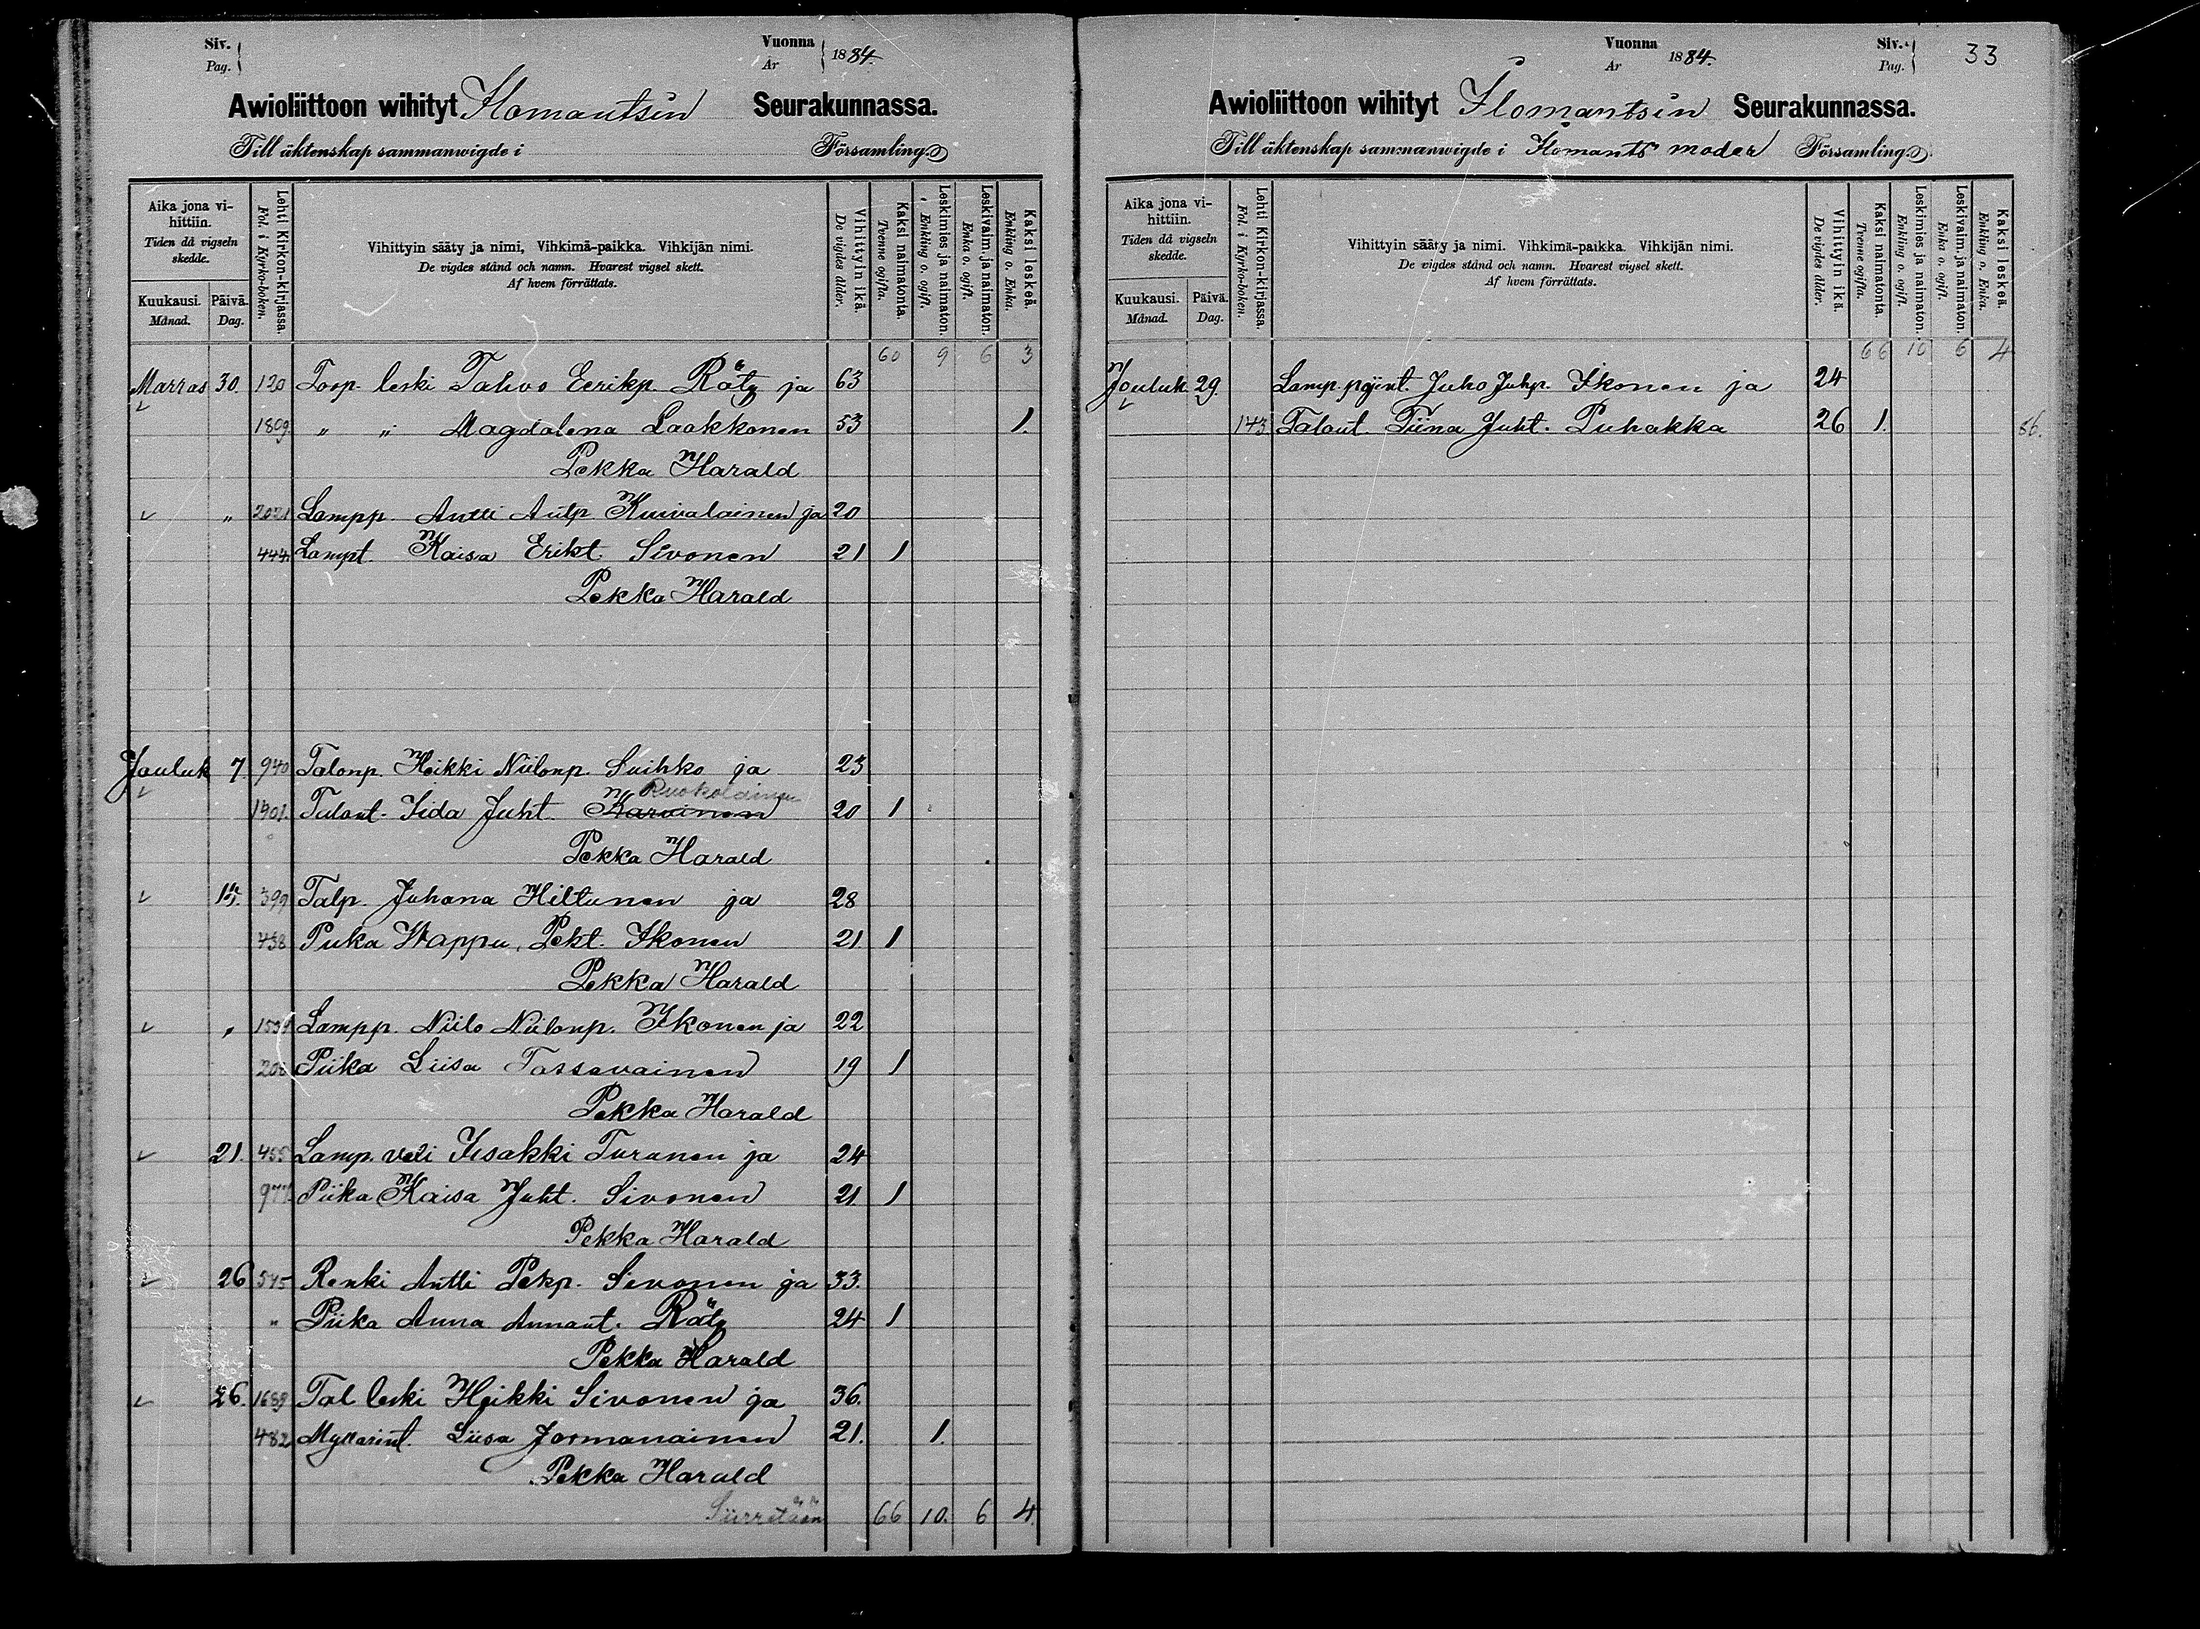 Siv.
Pag.
Vuonna
År
1884.
Awioliittoon wihityt Ilomantsin Seurakunnassa.
Till äktenskap sammanwigde i Församling
Aika jona vihittiin.
Tiden då vigseln skedde.
Kuukausi. Månad.
Päivä. Dag.
Lehti Kirkon-kirjassa. Fol. i Kyrko-boken.
Vihittyin sääty ja nimi, Vihkimä-paikka. Vihkijän nimi.
De vigdes stånd och namn. Hvarest vigsel skett.
Af hvem förrättats.
Vihittyin ikä. De vigdes ålder.
Kaksi naimatonta. Tvenne ogifta.
Leskimies ja naimaton. Enkling o. ogift.
Leskivaim ja naimaton. Enka o. ogift.
Kaksi leskeä. Enkling o. Enka.
60 9 6 3
Marras 30. 120 Loop. leski Tahvo Eerikp. Räty ja 63
1809 " " Magdalena Laakkonen 53 1.
Pekka Harald
" 2021 Lampp. Antti Aulp. Kuivalainen ja 20
444. Lampt. Kaisa Erikt. Sivonen 21 1
Pekka Harald
Jouluk 7 940 Talonp. Heikki Niilonp. Suihko ja 23
Ruokolainen
1401. Talont. Iida Juht. Karvinen 20 1
Pekka Harald
14. 399 Talp. Juhana Hiltunen ja 28
438 Piika Wappu, Pekt. Ikonen 21 1
Pekka Harald
" Lampp. Niilo Niilonp. Ikonen ja 22
Piika Liisa Tassavainen 19 1
Pekka Harald
21. 455 Lamp. veli Iisakki Turunen ja 24
977. Piika Kaisa Juht. Sivonen 21. 1
Pekka Harald
26 545 Renki Antti Pekp. Sivonen ja 33.
" Piika Anna Annant. Räty 24 1
Pekka Harald
26. 1689 Tal leski Heikki Sivonen ja 36.
482 Myllärint. Liisa Jormanainen 21. 1.
Pekka Harald
Siirretään 66 10. 6 4.
Vuonna
År
1884.
Siv.
Pag.
33
Awioliittoon wihityt Ilomantsin Seurakunnassa.
Till äktenskap sammanwigde i Ilomants moder Församling.
Aika jona vihittiin.
Tiden då vigseln skedde.
Kuukausi. Månad.
Päivä. Dag.
Lehti Kirkon-kirjassa. Fol. i Kyrko-boken.
Vihittyin sääty ja nimi. Vihkimä-paikka. Vihkijän nimi.
De vigdes stånd och namn. Hvarest vigsel skett.
Af hvem förrättats.
Vihittyin ikä. De vigdes ålder.
Kaksi naimatonta. Tvenne ogifta.
Leskimies ja naimaton. Enkling o. ogift.
Leskivaim ja naimaton. Enka o. ogift.
Kaksi leskeä. Enkling o. Enka.
66 10 6 4
Jouluk 29. Lamp. pojint. Juho Juhp. Ikonen ja 24
143 Talont. Tiina Juht. Puhakka 26 1. 86.